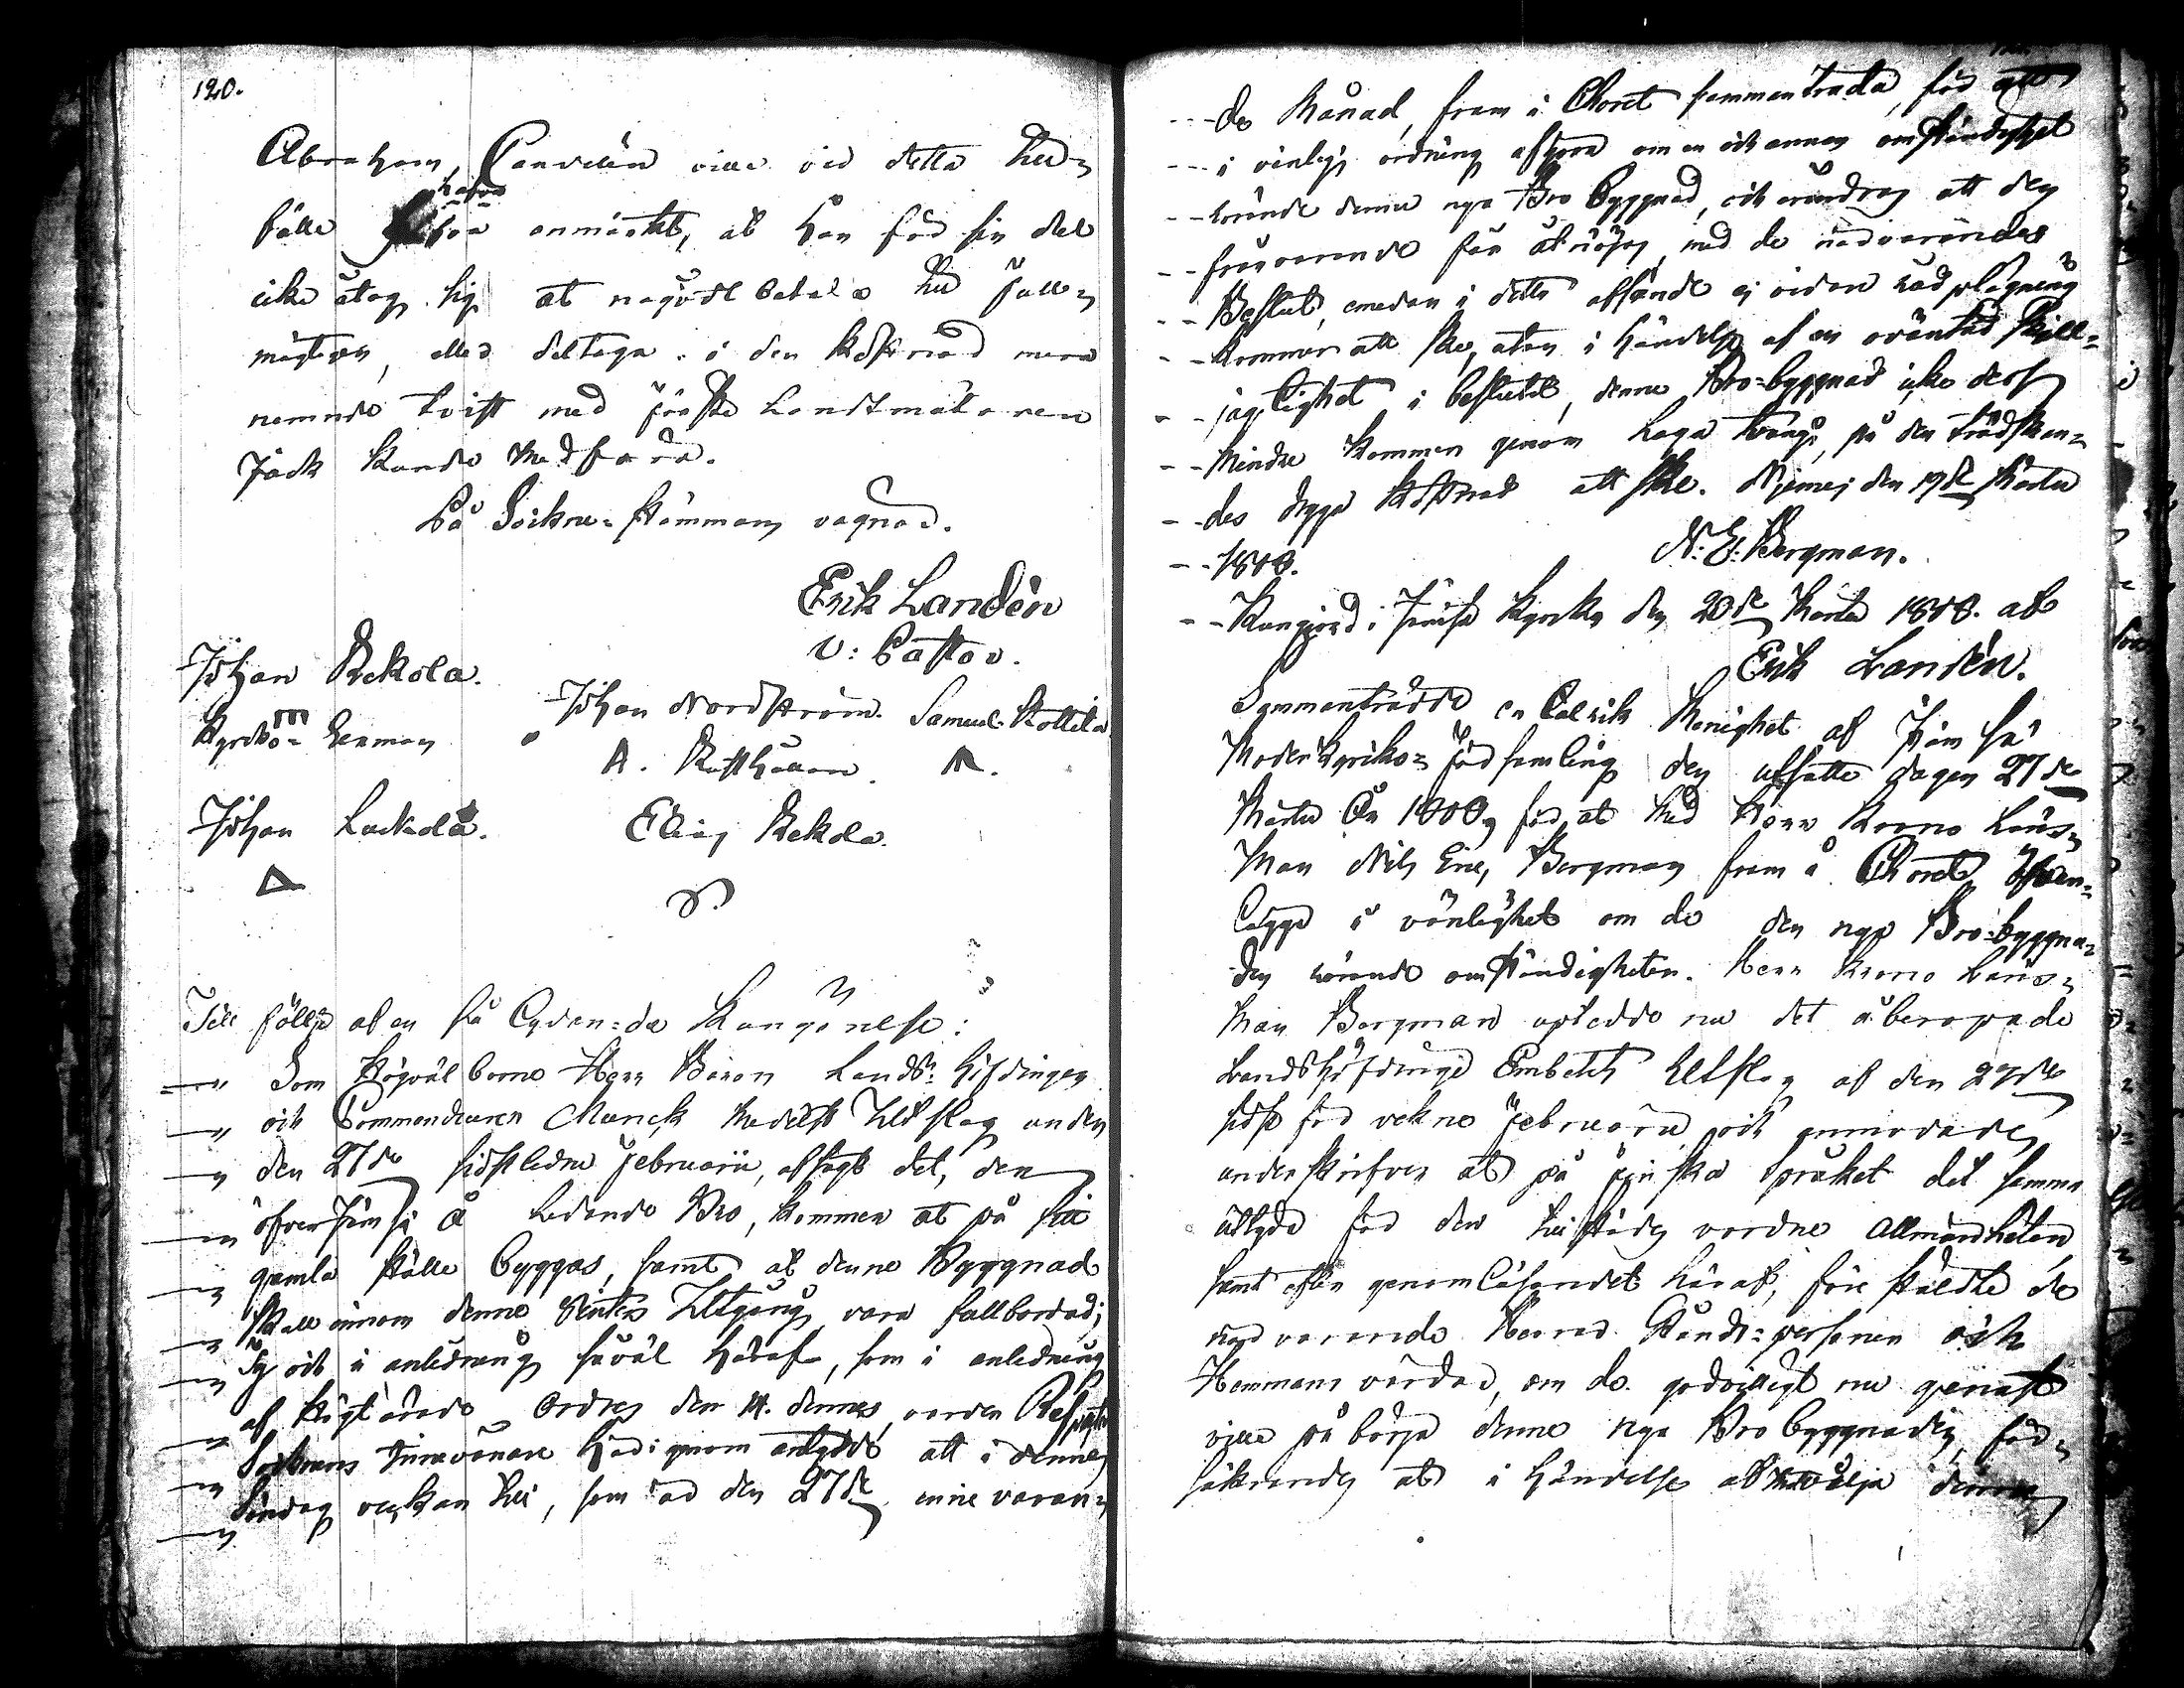 120.
Abraham Canvelin ville vid detta till-
fälle hafva anmärkt, at han för sin del
icke åtog sig at någodt betala till full-
mägten, eller deltaga i den kostnad mera
nemnde tvist med förste Landtmätaren
Jack kunde medföra.
På Sockne-Stämmans vägnar.
Erik Landén
V: Pastor.
Johan Rekola.
Johan Nordström. Samuel Kottila
Kyrko-
A.
Johan Luckola.
Elias Rekola.
Till följe af en så lydande Kungörelse:
Som Högvälborne Herr Baron Lands-Höfdingen
och Commendeuren Munck medelst Utslag under
den 27de sidstledne Februarii, afsagt det, den
öfver å ledande Bro, kommer at på sitt
gamla ställe byggas, samt at denne Byggnad
skall innom denne Vinters Utgång vara fullbordad;
Ty och i anledning såväl häraf, som i anledning
af högtärade Ordres den 14. dennes, varder
Socknens Innevånare härigenom anlydde att i dennes
Söndag veckan till, som är den 27de innevaran-
de Månad, fram i Choret sammanträda, för att
i vänlig ordning afgöra om en och annan omständighet
rörande denne nya Bro byggnad, och att den
frånvarande får åtnöjas med de närvarandes
Beslut, emedan i detta affseende ej vidare rådplägning
kommer att ske, utan i händelse af en oväntad Skill-
jagtighet i beslutet, denne Bro-byggnad icke dess
mindre kommer genom Laga tvång, på den tredskan-
des dryga kostnad att ske. den 19de Martii
1808. N: E: Bergman.
Kungjord i Kyrka den 20de Martii 1808. af
Erik Landén.
Sammanträdde en talrik Menighet af
Moderkyrko-Församling den utsatte dagen 27de
Martii År 1808, för at med Herr Krono Läns-
Man Nils Eric Bergman fram i Choret öfver-
lägga i vänlighet om de den nya Bro-byggna-
den rörande omständigheter. Herr Krono Läns-
Man Bergman uplästde nu det åberopade
Landshöfdinge Embetets Utslag af den 27de
sidst förvekne Februarii och anmodade
underskrifven at på finska Språket det samma
uttyda för den tillstädes vordne Allmänheten
samt efter genomläsandet häraf, före stäldte de
närvarande Herrar Stånds-personer och
Hemmans värdar, om de godvilligt nu genast
ville på börja denne nya Bro byggnaden, för-
säkrandes at i händelse af